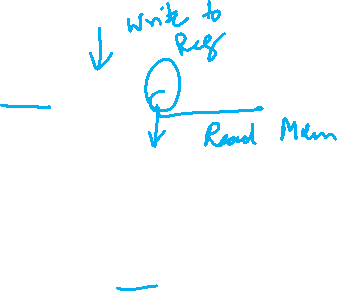 Write to
Reg
Read Mem